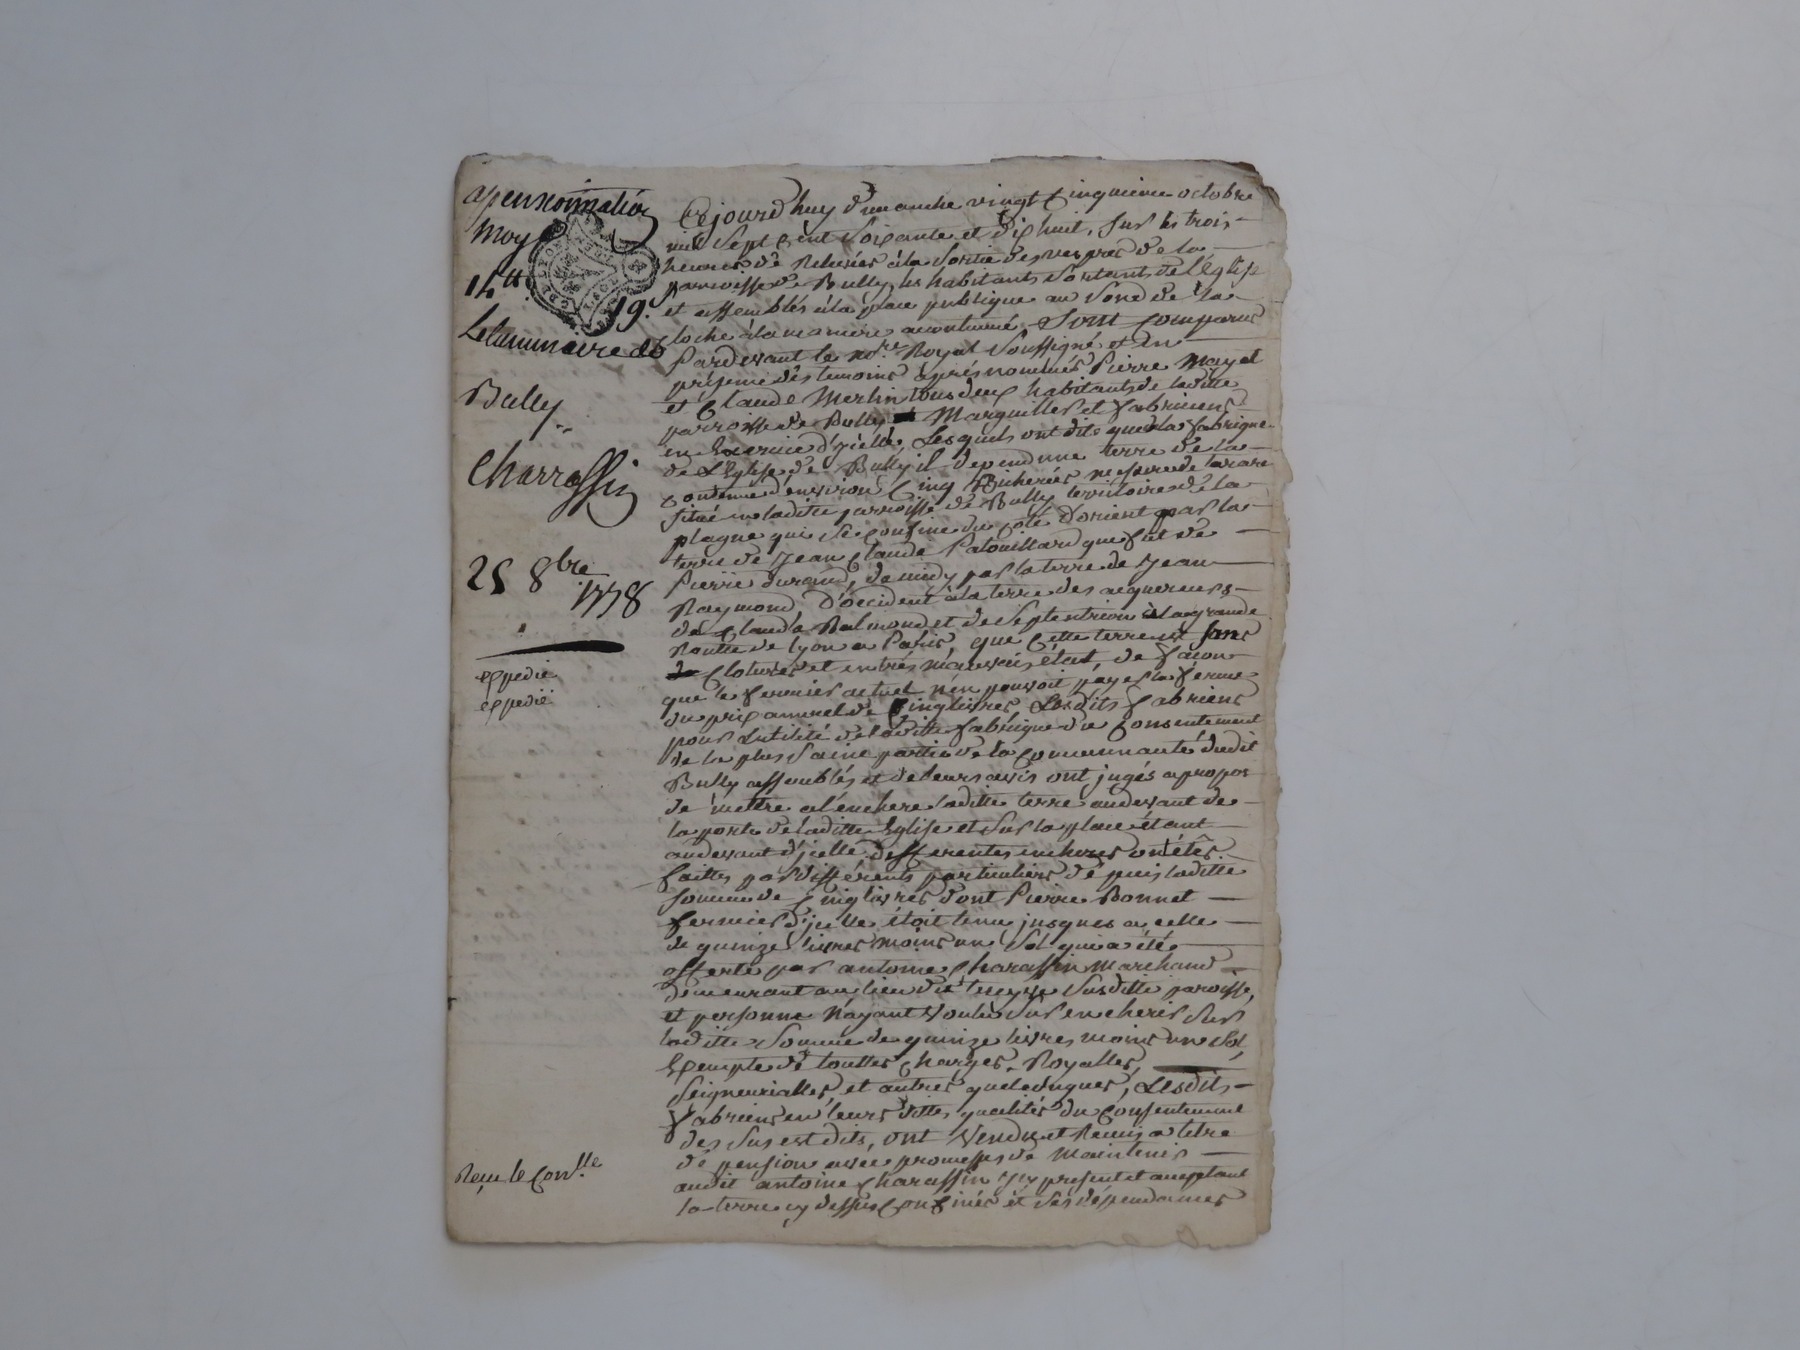 apensionnation
Moy
14tt 19s
Le Luminaire de
Bully
Charrassin
25 8bre
1778
expedié
expedié
Reçu le Conlle
Cejourd'huy dimanche vingt cinquieme octobre
mil sept cent soixante et dix huit, sur les trois
heures de relevée à la sortie des vespres de la
parroisse de Bully, les habitants sortants de l'Eglise
et assemblés à la place publique au son de la
cloche à la maniere acoutumé sont comparus
Pardevant le nore Royal soussigné et en
présence des temoins après nommés Pierre Mayet
et Claude Merlin tous deux habitants de laditte
parroisse de Bully Marguillers et fabriciens
en exercice d'jcelle, Lesquels ont dit que de la fabrique
de L'Eglise de Bully il depend une terre de la
contenue d'environ cinq Bicherées mesure de tarare
situé en laditte parroisse de Bully territoire de la
plagne qui se confine du coté d'orient par la
terre de Jean Claude Patouillard que fut de
Pierre durand, de midy par la terre de Jean
Raymond, d'occident à la terre des acquereurs
de Claude Ralmond et de septentrion à la grande
Routte de Lyon a Paris, que cette terre est sans
clotures et en très mauvais état, de facon
que le fermier actuel n'en pouvoit payer la ferme
du prix annuel de cinq livres, Lesdits fabriciens
pour l'utilité de laditte fabrique du consentement
de la plus saine partie de la communauté dudit
Bully assemblés et de leurs avis ont jugés apropos
de mettre a l'enchere laditte terre audevant de
la porte de laditte Eglise et sur la place étant
audevant d'jcelle differentes encheres ont étés
faittes par différents particuliers depuis laditte
somme de cinq livres dont Pierre Bonnet
fermier d'jcelle étoit tenu jusques a celle
de quinze livres moins un sol qui a été
offerte par antoine Charassin Marchand
demeurant au lieu de susditte paroisse,
et personne n'ayant voulu sur encherir sur
laditte somme de quinze livres moins un sol,
Exempte de touttes charges, Royalles,
seigneurialles, et autres quelconques, Lesdits
fabriciens en leurs dittes qualités du consentement
des sus est dits, ont vendu et remis a titre
de pension avec promesse de maintenir
audit antoine Charassin jcy present et acceptant
la terre cy dessus confinée et ses dépendances